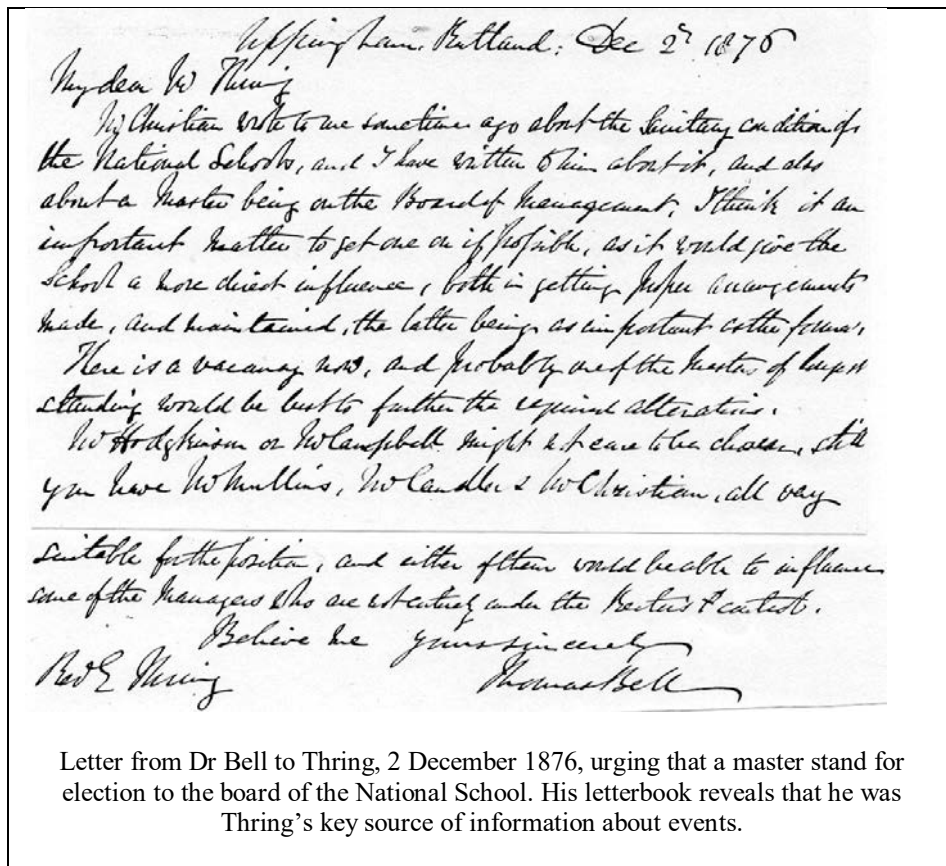 Uppingham. Rutland: Dec 2nd 1876
My dear Mr Thring
Mr Christian wrote to me sometime ago about the Sanitary condition of
the National Schools, and I have written to him about it, and also
about a Master being on the Board of Management. I think it an
important matter to get one on if possible, as it would give the
School a more direct influence, both in getting proper arrangements
made, and maintained, the latter being as important as the former.
There is a vacancy now, and probably one of the Masters of longest
standing would be best to further the required alterations.
Mr Hodgkinson or Mr Campbell might not care to be chosen, still
you have Mr Mullins, Mr Candler & Mr Christian, all very
suitable for the position, and either of them would be able to influence
some of the Managers who are not entirely under the Rector's control.
Believe me yours sincerely
Rev E Thring Thomas Bell
Letter from Dr Bell to Thring, 2 December 1876, urging that a master stand for
election to the board of the National School. His letterbook reveals that he was
Thring’s key source of information about events.